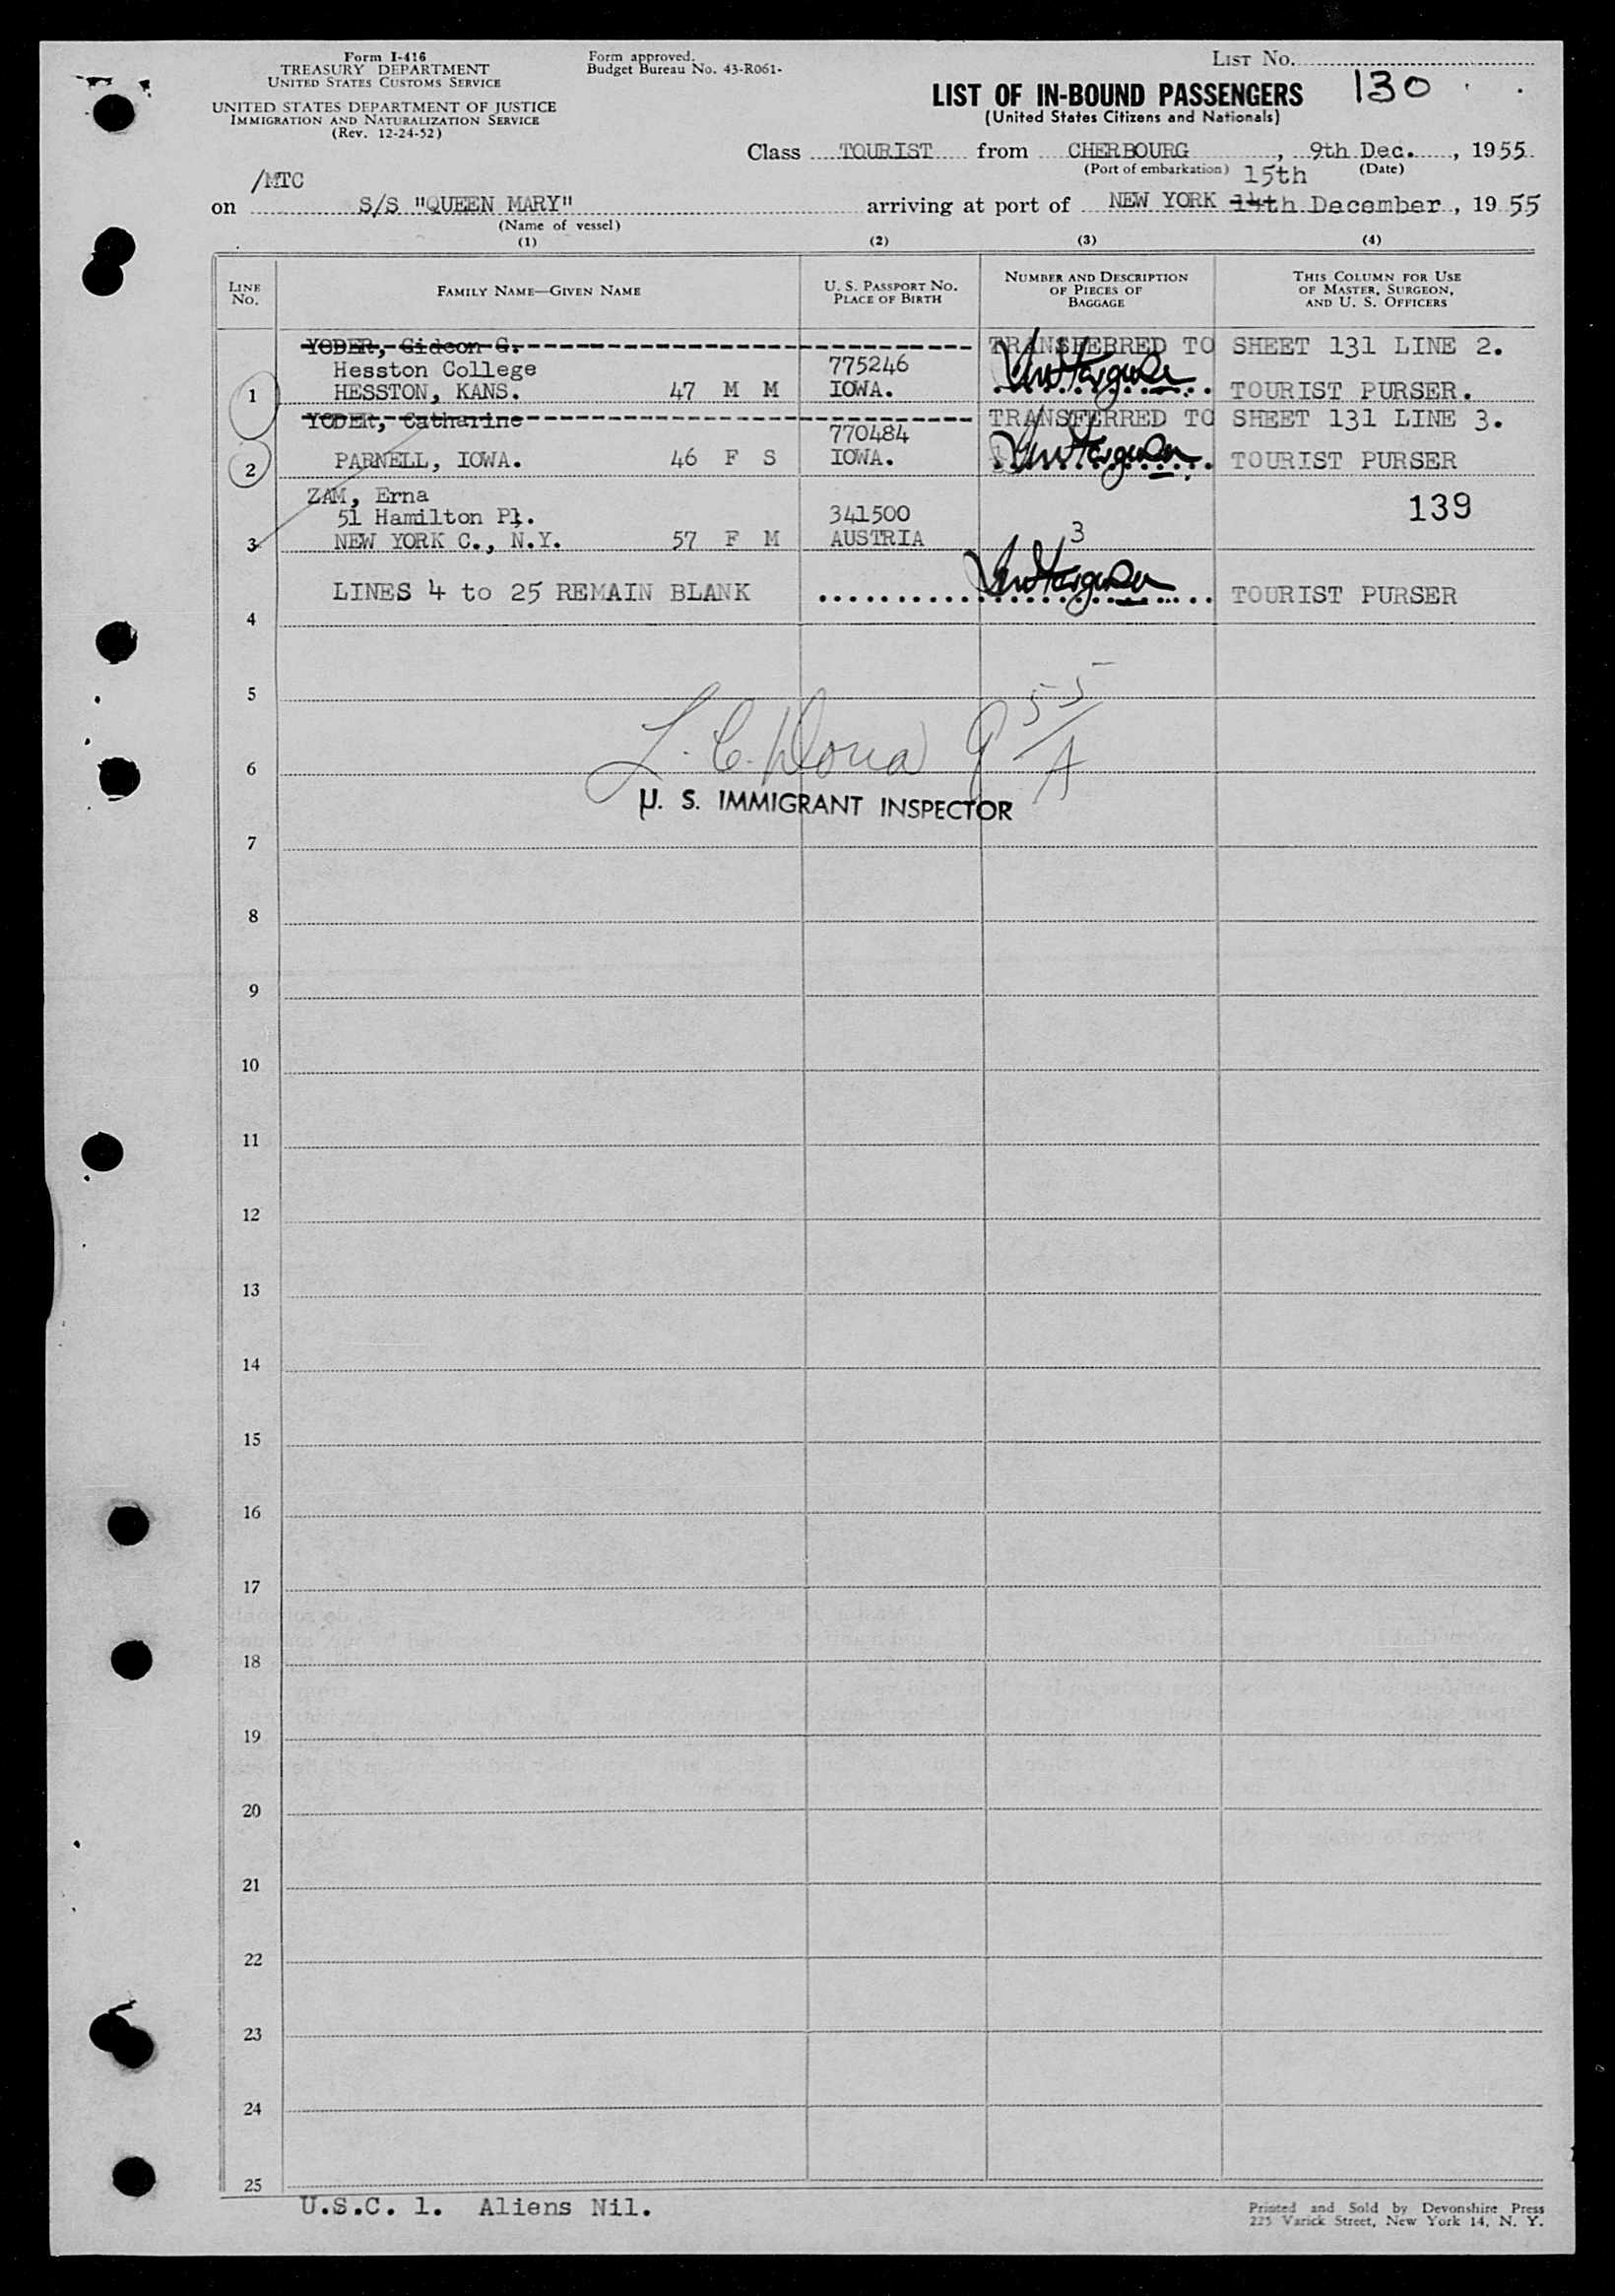 Form I-416
TREASURY DEPARTMENT
UNITED STATES CUSTOMS SERVICE
UNITED STATES DEPARTMENT OF JUSTICE
IMMIGRATION AND NATURALIZATION SERVICE
(Rev. 12-24-52)
Form approved.
Budget Bureau No. 43-R061-
LIST No.
130
LIST OF IN-BOUND PASSENGERS
(United States Citizens and Nationals)
Class TOURIST from CHERBOURG, 9th Dec., 1955
(Port of embarkation) (Date)
/MTC
15th
on S/S "QUEEN MARY" arriving at port of NEW YORK 14th December, 1955
(Name of vessel)
(1) (2) (3) (4)
LINE No.
FAMILY NAME—GIVEN NAME
U. S. PASSPORT NO.
PLACE OF BIRTH
NUMBER AND DESCRIPTION
OF PIECES OF
BAGGAGE
THIS COLUMN FOR USE
OF MASTER, SURGEON,
AND U. S. OFFICERS
YODER, Gideon G. TRANSFERRED TO SHEET 131 LINE 2.
Hesston College 775246
1 HESSTON, KANS. 47 M M IOWA. TOURIST PURSER.
YODER, Catharine TRANSFERRED TO SHEET 131 LINE 3.
770484
2 PARNELL, IOWA. 46 F S IOWA. TOURIST PURSER
ZAM, Erna 139
51 Hamilton Pl. 341500
3 NEW YORK C., N.Y. 57 F M AUSTRIA 3
LINES 4 to 25 REMAIN BLANK TOURIST PURSER
4
5
55
6
A
U. S. IMMIGRANT INSPECTOR
7
8
9
10
11
12
13
14
15
16
17
18
19
20
21
22
23
24
25
U.S.C. 1. Aliens Nil.
Printed and Sold by Devonshire Press
225 Varick Street, New York 14, N. Y.